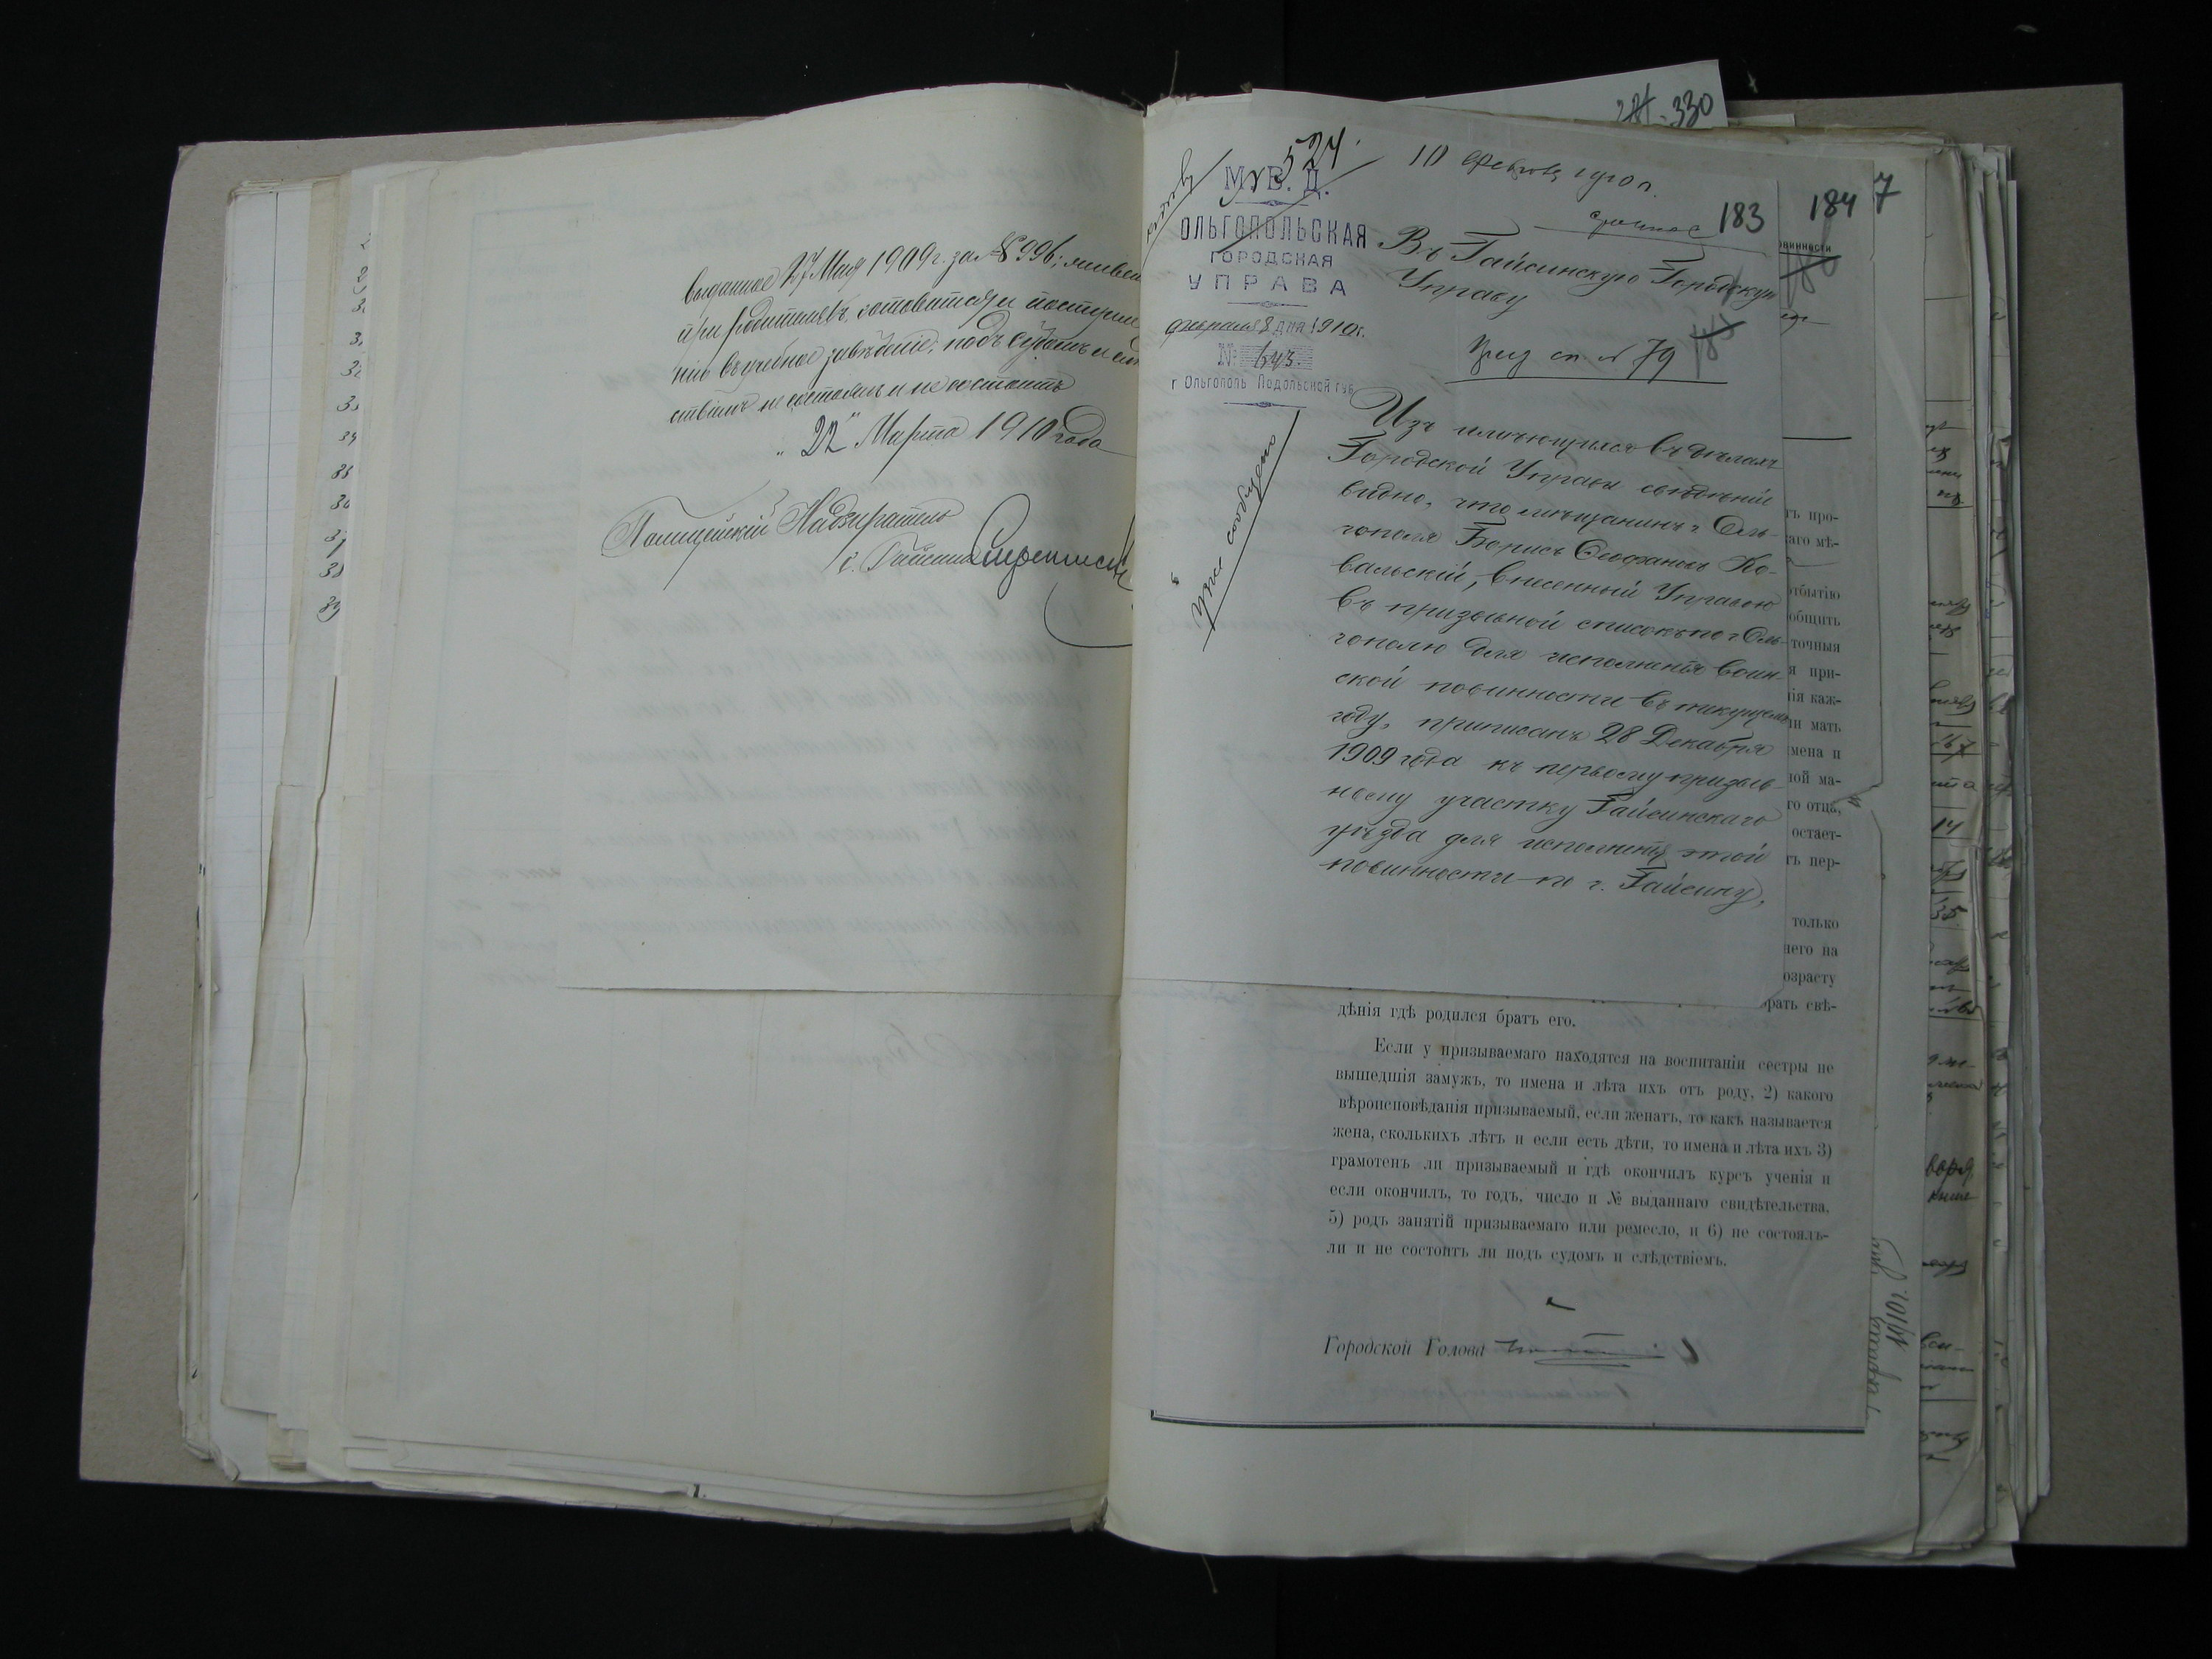 выданное 27 Мая 1909 г. за № 996; живетъ
при родителяхъ, готовится къ поступле
нію въ учебное заведеніе, подъ судомъ и слѣд
ствіемъ не состоялъ и не состоитъ
„22" Марта 1910 года
Полицейскій Надзиратель
г. Гайсина
281-330
524
10 Февраля 1910 г.
срочное
183
184
7
М. В. Д.
ОЛЬГОПОЛЬСКАЯ
ГОРОДСКАЯ
УПРАВА
Февраля 8 дня 1910 г.
№ 643.
г Ольгополь Подольской губ.
Въ Гайсинскую Городскую
Управу
Приз сп. № 79
Уже сообщено
Изъ имѣющихся въ дѣлахъ
Городской Управы свѣдѣній
видно, что мѣщанинъ г. Оль-
гополя Борисъ Стефановъ Ко-
вальскій, внесенный Управою
въ призывной списокъ по г. Оль-
гополю для исполненія воин-
ской повинности въ текущемъ
году, приписанъ 28 Декабря
1909 года къ первому призыв-
ному участку Гайсинскаго
уѣзда для исполненія этой
повинности по г. Гайсину,
овинности
ъ про-
аго мѣ-
отбытію
общить
точныя
я при-
нія каж-
и мать
мена и
ной ма-
го отца,
остает-
ъ пер-
только
него на
озрасту
брать свѣ-
дѣнія гдѣ родился братъ его.
Если у призываемаго находятся на воспитаніи сестры не
вышедшія замужъ, то имена и лѣта ихъ отъ роду, 2) какого
вѣроисповѣданія призываемый, если женатъ, то какъ называется
жена, сколькихъ лѣтъ и если есть дѣти, то имена и лѣта ихъ 3)
грамотенъ ли призываемый и гдѣ окончилъ курсъ ученія и
если окончилъ, то годъ, число и № выданнаго свидѣтельства,
5) родъ занятій призываемаго или ремесло, и 6) не состоялъ-
ли и не состоитъ ли подъ судомъ и слѣдствіемъ.
Городской Голова